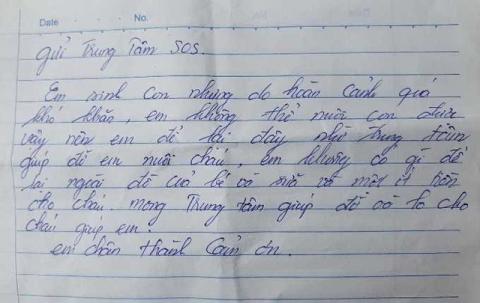 Date No.
Gửi Trung Tâm SOS.
Em sinh con nhưng do hoàn cảnh quá
khó khăn, em không thể nuôi con được
vậy nên em để tại đây nhờ trung tâm
giúp đỡ em nuôi cháu, em không có gì để
lại ngoài đồ của bé có sữa và một ít tiền
cho cháu mong Trung tâm giúp đỡ và lo cho
cháu giúp em.
em chân thành cảm ơn.